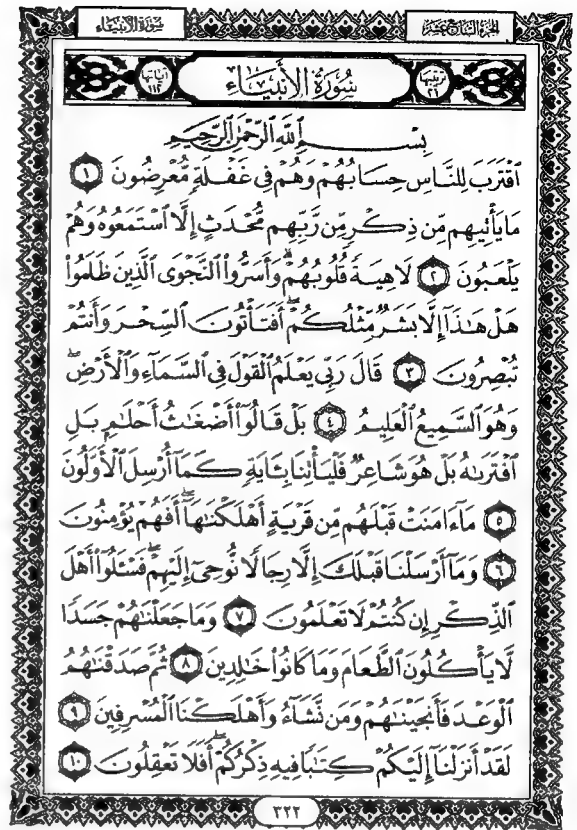 سُورَةُ الأَنبِيَاء
الجزء السابع عشر
آيَاتُهَا ١١٢
سُورَةُ الأَنبِيَاء
تَرتيبُهَا ٢١
بِسْمِ ٱللَّهِ ٱلرَّحْمَٰنِ ٱلرَّحِيمِ
ٱقْتَرَبَ لِلنَّاسِ حِسَابُهُمْ وَهُمْ فِى غَفْلَةٍ مُّعْرِضُونَ ١
مَا يَأْتِيهِم مِّن ذِكْرٍ مِّن رَّبِّهِم مُّحْدَثٍ إِلَّا ٱسْتَمَعُوهُ وَهُمْ
يَلْعَبُونَ ٢ لَاهِيَةً قُلُوبُهُمْ ۗ وَأَسَرُّوا۟ ٱلنَّجْوَى ٱلَّذِينَ ظَلَمُوا۟
هَلْ هَٰذَآ إِلَّا بَشَرٌ مِّثْلُكُمْ ۖ أَفَتَأْتُونَ ٱلسِّحْرَ وَأَنتُمْ
تُبْصِرُونَ ٣ قَالَ رَبِّى يَعْلَمُ ٱلْقَوْلَ فِى ٱلسَّمَآءِ وَٱلْأَرْضِ ۖ
وَهُوَ ٱلسَّمِيعُ ٱلْعَلِيمُ ٤ بَلْ قَالُوٓا۟ أَضْغَٰثُ أَحْلَٰمٍۭ بَلِ
ٱفْتَرَىٰهُ بَلْ هُوَ شَاعِرٌ فَلْيَأْتِنَا بِـَٔايَةٍ كَمَآ أُرْسِلَ ٱلْأَوَّلُونَ
٥ مَآ ءَامَنَتْ قَبْلَهُم مِّن قَرْيَةٍ أَهْلَكْنَٰهَآ ۖ أَفَهُمْ يُؤْمِنُونَ
٦ وَمَآ أَرْسَلْنَا قَبْلَكَ إِلَّا رِجَالًا نُّوحِىٓ إِلَيْهِمْ ۖ فَسْـَٔلُوٓا۟ أَهْلَ
ٱلذِّكْرِ إِن كُنتُمْ لَا تَعْلَمُونَ ٧ وَمَا جَعَلْنَٰهُمْ جَسَدًا
لَّا يَأْكُلُونَ ٱلطَّعَامَ وَمَا كَانُوا۟ خَٰلِدِينَ ٨ ثُمَّ صَدَقْنَٰهُمُ
ٱلْوَعْدَ فَأَنجَيْنَٰهُمْ وَمَن نَّشَآءُ وَأَهْلَكْنَا ٱلْمُسْرِفِينَ ٩
لَقَدْ أَنزَلْنَآ إِلَيْكُمْ كِتَٰبًا فِيهِ ذِكْرُكُمْ ۖ أَفَلَا تَعْقِلُونَ ١٠
٣٢٢